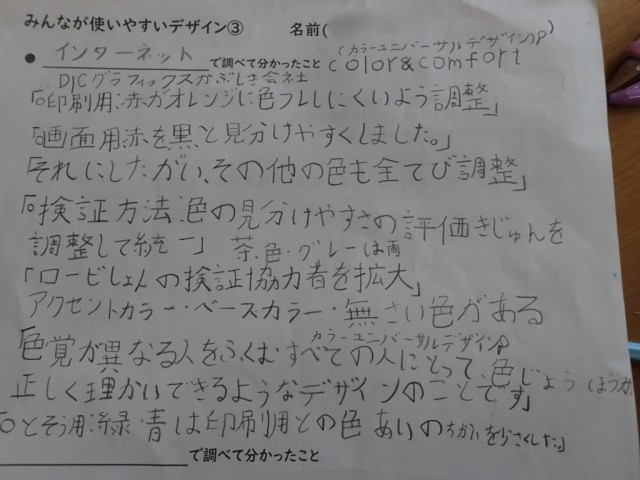 みんなが使いやすいデザイン③　名前(　　)
(カラーユニバーサルデザイン)P
●インターネットで調べて分かったこと color&comfort
DICグラフィックスかぶしき会社
「○印刷用:赤がオレンジに色フレしにくいよう調整」
「○画面用:赤を黒と見分けやすくしました。」
「それにしたがい、その他の色も全てび調整」
「○検証方法:色の見分けやすさの評価きじゅんを
調整して統一」 茶色・グレーは両
「ロービしょんの検証協力者を拡大」
アクセントカラー・ベースカラー・無さい色がある
カラーユニバーサルデザインP
「色覚が異なる人をふくむすべての人にとって、色じょう(ほうが
正しく理かいできるようなデザインのことです」
「○とそう用:緑・青は印刷用との色あいのちがいを少さくした。」
で調べて分かったこと